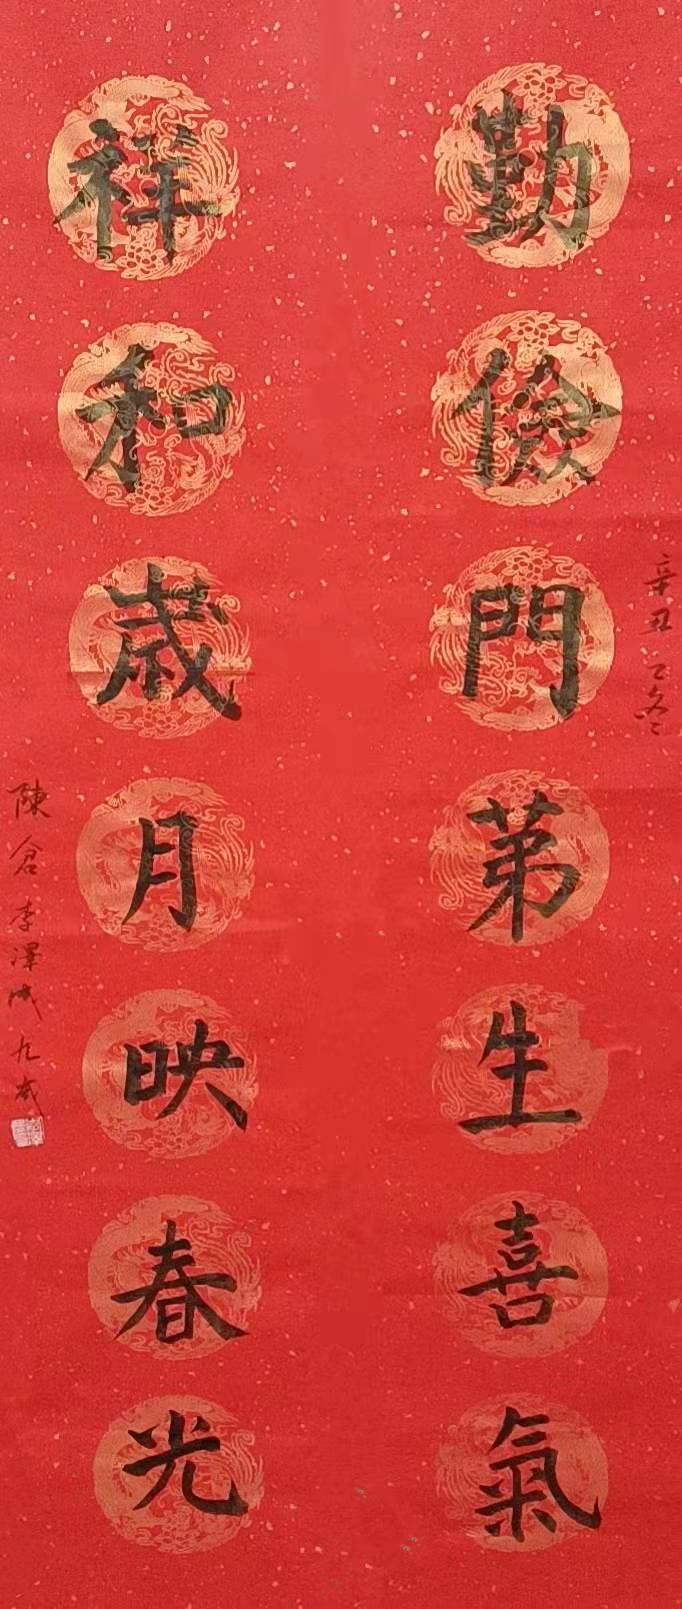 勤儉門苐生喜氣
辛丑之冬
祥和歲月映春光
陳倉李澤成九歲